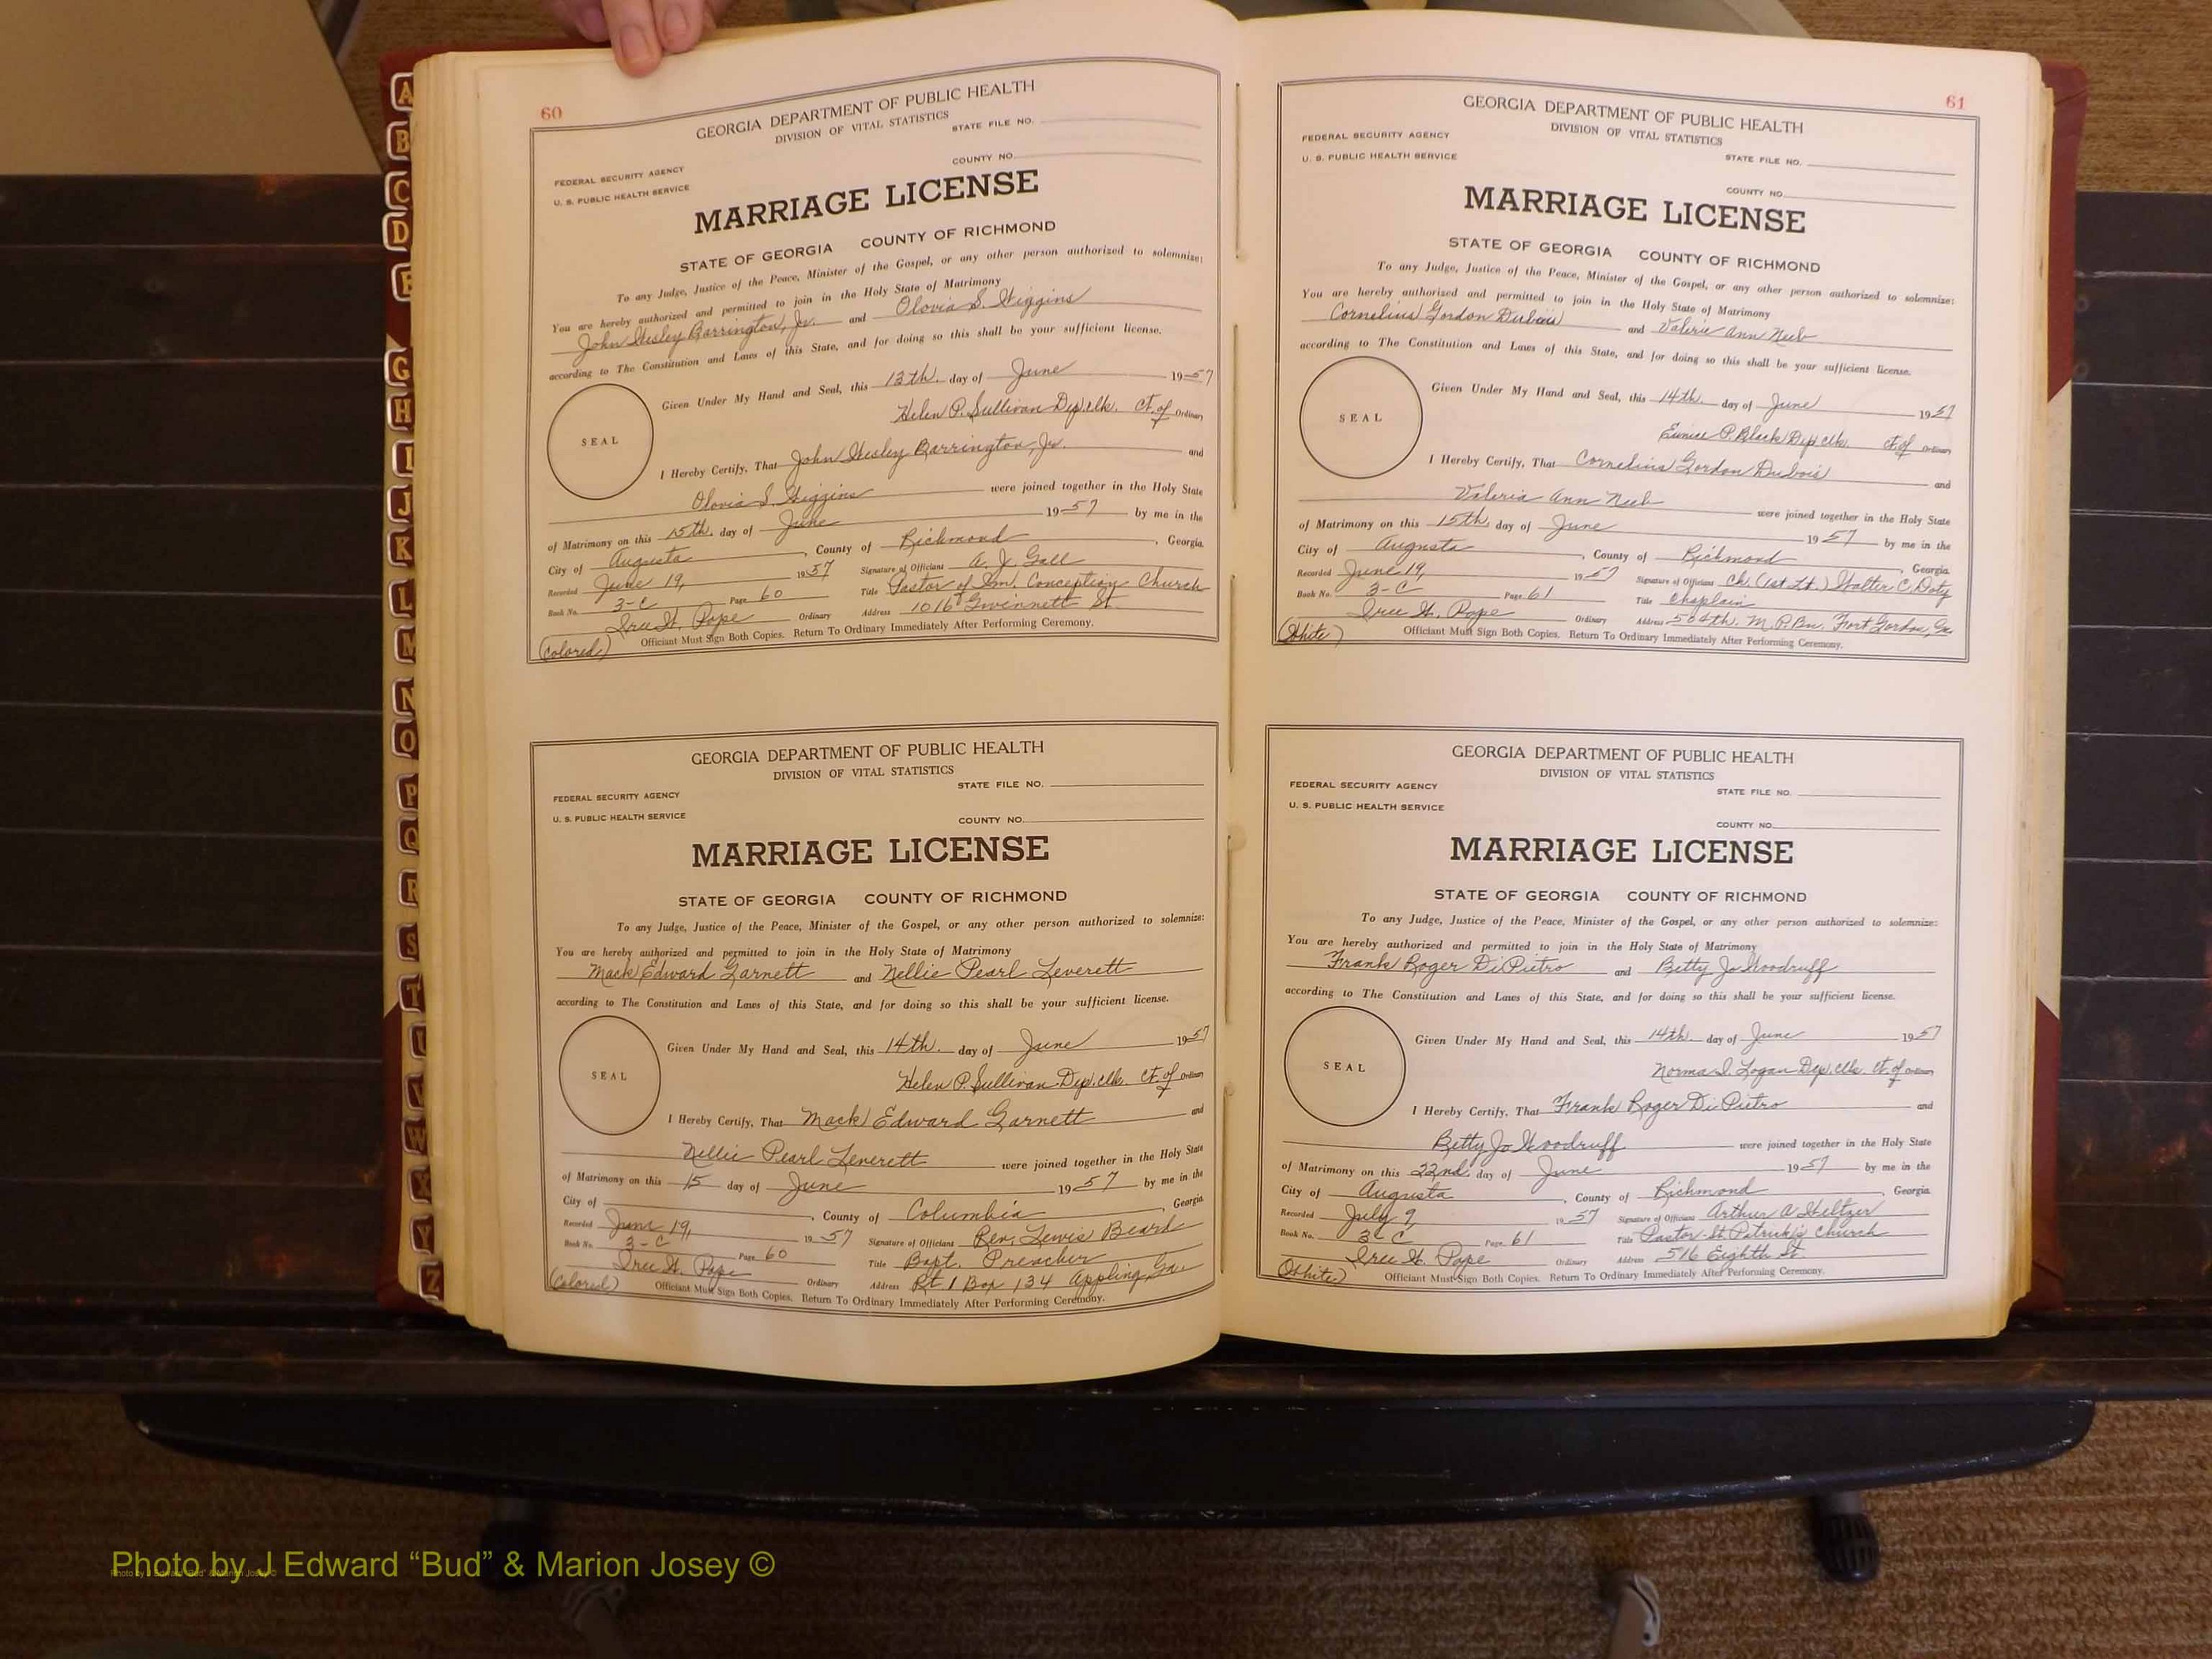 A
B
C
D
F
G
H
I
J
K
L
M
N
O
P
Q
R
S
T
U
V
W
X
Y
Z
60
GEORGIA DEPARTMENT OF PUBLIC HEALTH
DIVISION OF VITAL STATISTICS
STATE FILE NO.
COUNTY NO.
FEDERAL SECURITY AGENCY
U. S. PUBLIC HEALTH SERVICE
MARRIAGE LICENSE
STATE OF GEORGIA COUNTY OF RICHMOND
To any Judge, Justice of the Peace, Minister of the Gospel, or any other person authorized to solemnize:
You are hereby authorized and permitted to join in the Holy State of Matrimony
John Wesley Barrington, Jr. and Olovia S. Wiggins
according to The Constitution and Laws of this State, and for doing so this shall be your sufficient license.
Given Under My Hand and Seal, this 13th. day of June 1957
Helen P. Sullivan Dep. clk. Ct. of Ordinary
SEAL
I Hereby Certify, That John Wesley Barrington, Jr. and
Olovia S. Wiggins were joined together in the Holy State
of Matrimony on this 15th. day of June 1957 by me in the
City of Augusta, County of Richmond, Georgia.
Recorded June 19, 1957 Signature of Officiant A. J. Gall
Book No. 3-C Page 60 Title Pastor of Im. Conception Church
Ordinary Address 1016 Gwinnett St.
(Colored) Officiant Must Sign Both Copies. Return To Ordinary Immediately After Performing Ceremony.
GEORGIA DEPARTMENT OF PUBLIC HEALTH
DIVISION OF VITAL STATISTICS
STATE FILE NO.
FEDERAL SECURITY AGENCY
U. S. PUBLIC HEALTH SERVICE
COUNTY NO.
MARRIAGE LICENSE
STATE OF GEORGIA COUNTY OF RICHMOND
To any Judge, Justice of the Peace, Minister of the Gospel, or any other person authorized to solemnize:
You are hereby authorized and permitted to join in the Holy State of Matrimony
Mack Edward Garnett and Nellie Pearl Leverett
according to The Constitution and Laws of this State, and for doing so this shall be your sufficient license.
Given Under My Hand and Seal, this 14th. day of June 1957
Helen P. Sullivan Dep. clk. Ct. of Ordinary
SEAL
I Hereby Certify, That Mack Edward Garnett and
Nellie Pearl Leverett were joined together in the Holy State
of Matrimony on this 15 day of June 1957 by me in the
City of , County of Columbia, Georgia
Recorded June 19, 1957 Signature of Officiant Rev. Lewis Beard
Book No. 3-C Page 60 Title Bapt. Preacher
Ordinary Address Rt 1 Box 134 Appling, Ga.
(Colored) Officiant Must Sign Both Copies. Return To Ordinary Immediately After Performing Ceremony.
61
GEORGIA DEPARTMENT OF PUBLIC HEALTH
DIVISION OF VITAL STATISTICS
FEDERAL SECURITY AGENCY
U. S. PUBLIC HEALTH SERVICE
STATE FILE NO.
COUNTY NO.
MARRIAGE LICENSE
STATE OF GEORGIA COUNTY OF RICHMOND
To any Judge, Justice of the Peace, Minister of the Gospel, or any other person authorized to solemnize:
You are hereby authorized and permitted to join in the Holy State of Matrimony
Cornelius Gordon DuBois and Valerie Ann Neeb
according to The Constitution and Laws of this State, and for doing so this shall be your sufficient license.
Given Under My Hand and Seal, this 14th. day of June 1957
Eunice P. Black Dep. clk. Ct. of Ordinary
SEAL
I Hereby Certify, That Cornelius Gordon DuBois and
Valeria Ann Neeb were joined together in the Holy State
of Matrimony on this 15th. day of June 1957 by me in the
City of Augusta, County of Richmond, Georgia.
Recorded June 19, 1957 Signature of Officiant Ch. (1st Lt.) Walter C. Doty
Book No. 3-C Page 61 Title Chaplain
Ordinary Address 504th. M.P. Bn. Fort Gordon, Ga.
(White) Officiant Must Sign Both Copies. Return To Ordinary Immediately After Performing Ceremony.
GEORGIA DEPARTMENT OF PUBLIC HEALTH
DIVISION OF VITAL STATISTICS
FEDERAL SECURITY AGENCY
STATE FILE NO.
U. S. PUBLIC HEALTH SERVICE
COUNTY NO.
MARRIAGE LICENSE
STATE OF GEORGIA COUNTY OF RICHMOND
To any Judge, Justice of the Peace, Minister of the Gospel, or any other person authorized to solemnize:
You are hereby authorized and permitted to join in the Holy State of Matrimony
Frank Roger DiPietro and Betty Jo Woodruff
according to The Constitution and Laws of this State, and for doing so this shall be your sufficient license.
Given Under My Hand and Seal, this 14th. day of June 1957
Norma I. Logan Dep. clk. Ct. of Ordinary
SEAL
I Hereby Certify, That Frank Roger DiPietro and
Betty Jo Woodruff were joined together in the Holy State
of Matrimony on this 22nd. day of June 1957 by me in the
City of Augusta, County of Richmond, Georgia
Recorded July 9, 1957 Signature of Officiant Arthur A Weltzer
Book No. 3-C Page 61 Title Pastor-St. Patrick's Church
Ordinary Address 516 Eighth St.
(White) Officiant Must Sign Both Copies. Return To Ordinary Immediately After Performing Ceremony.
Photo by J Edward “Bud” & Marion Josey ©
Photo by J Edward "Bud" & Marion Josey ©